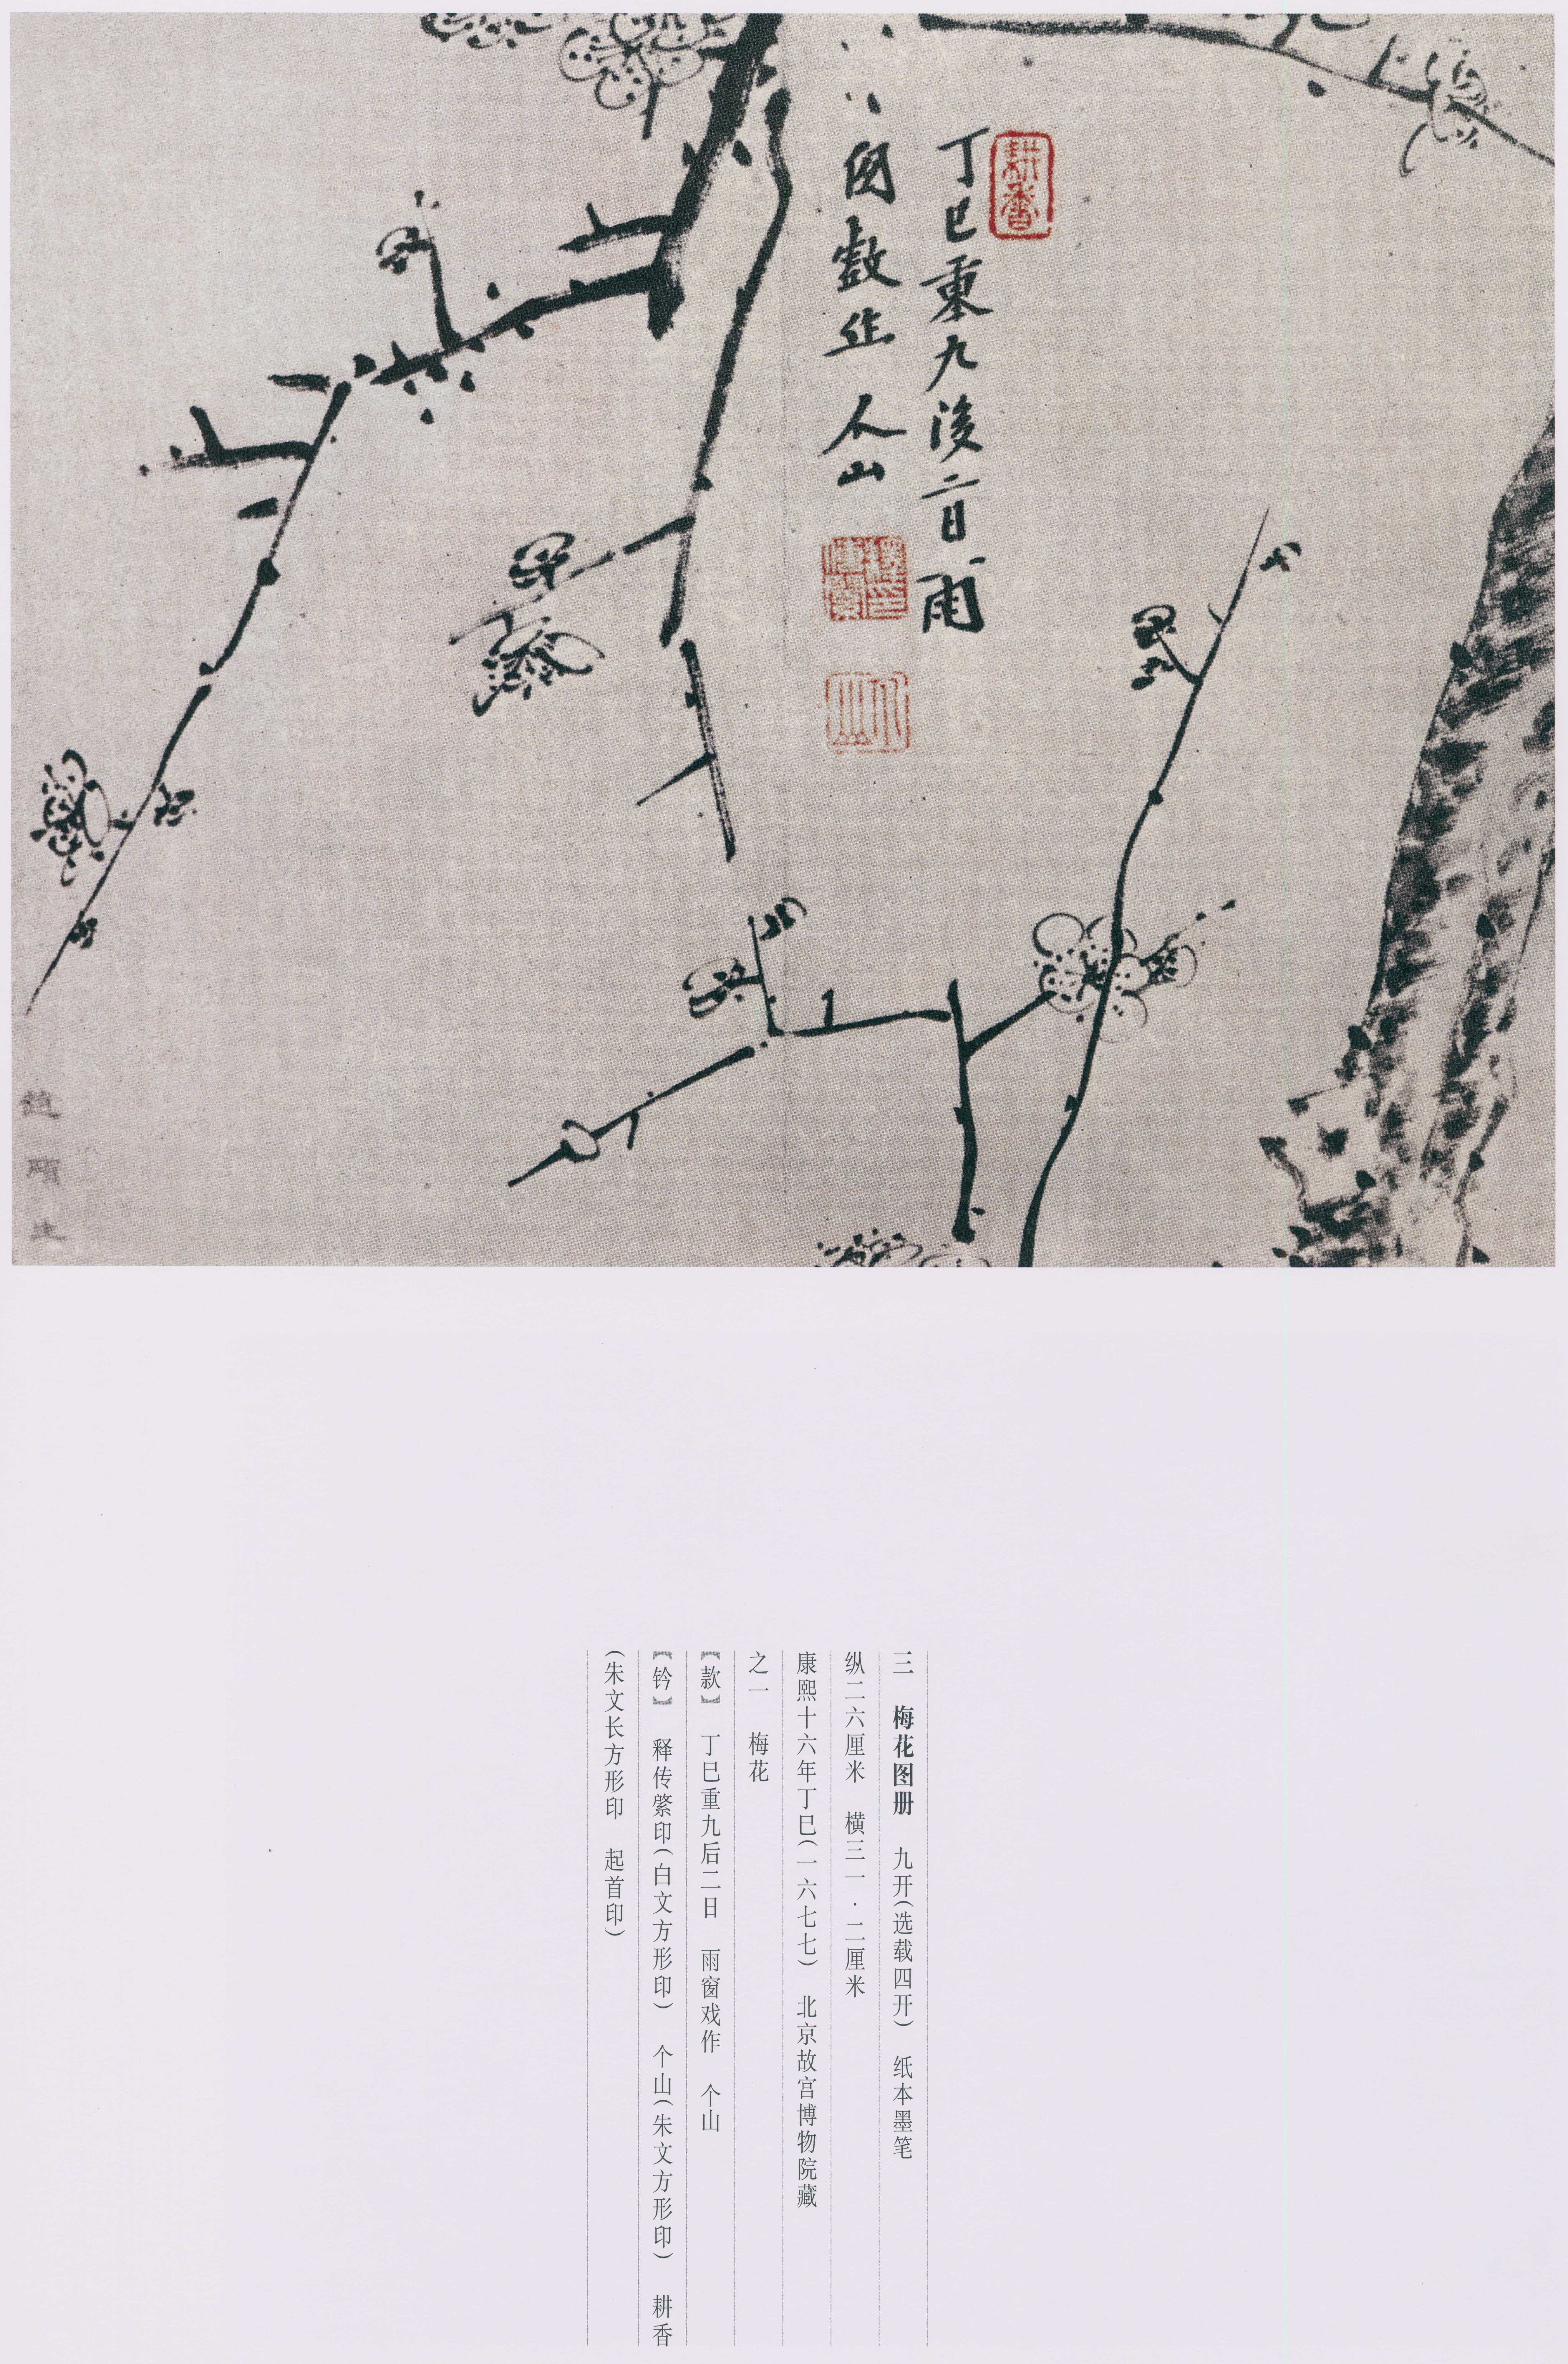 耕香
丁巳重九後二日雨
囱戲作 个山
釋傳綮印
个山
三 梅花图册 九开(选载四开) 纸本墨笔
纵二六厘米 横三一·二厘米
康熙十六年丁巳(一六七七) 北京故宫博物院藏
之一 梅花
【款】 丁巳重九后二日 雨窗戏作 个山
【钤】 释传綮印(白文方形印) 个山(朱文方形印) 耕香
(朱文长方形印 起首印)